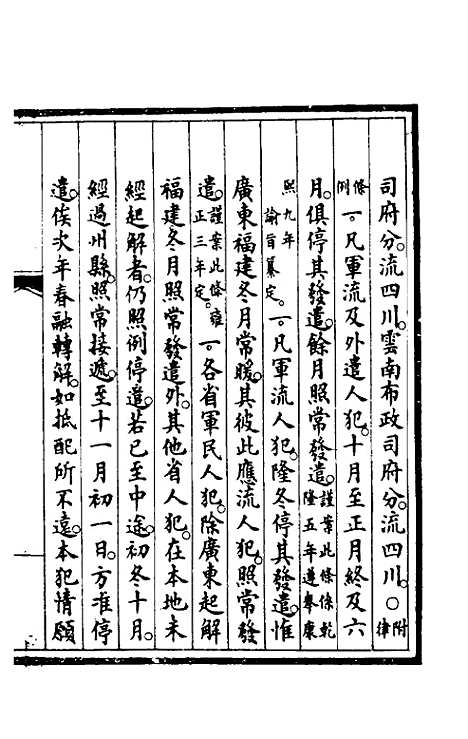 司府分。流四川。雲南布政司府分。流四川。○附律
條例一。凡軍流及外遣人犯。十月至正月終及六
月。俱停其發遣。餘月照常發遣。謹案此條係乾隆五年遵奉康
熙九年諭旨纂定。一。凡軍流人犯。隆冬停其發遣。惟
廣東福建冬月常暖。其彼此應流人犯。照常發
遣。謹案此條雍正三年定。一。各省軍民人犯。除廣東起解
福建冬月照常發遣外。其他省人犯。在本地未
經起解者。仍照例停遣。若已至中途。初冬十月。
經過州縣。照常接遞。至十一月初一日。方准停
遣。俟次年春融轉解。如抵配所不遠。本犯情願